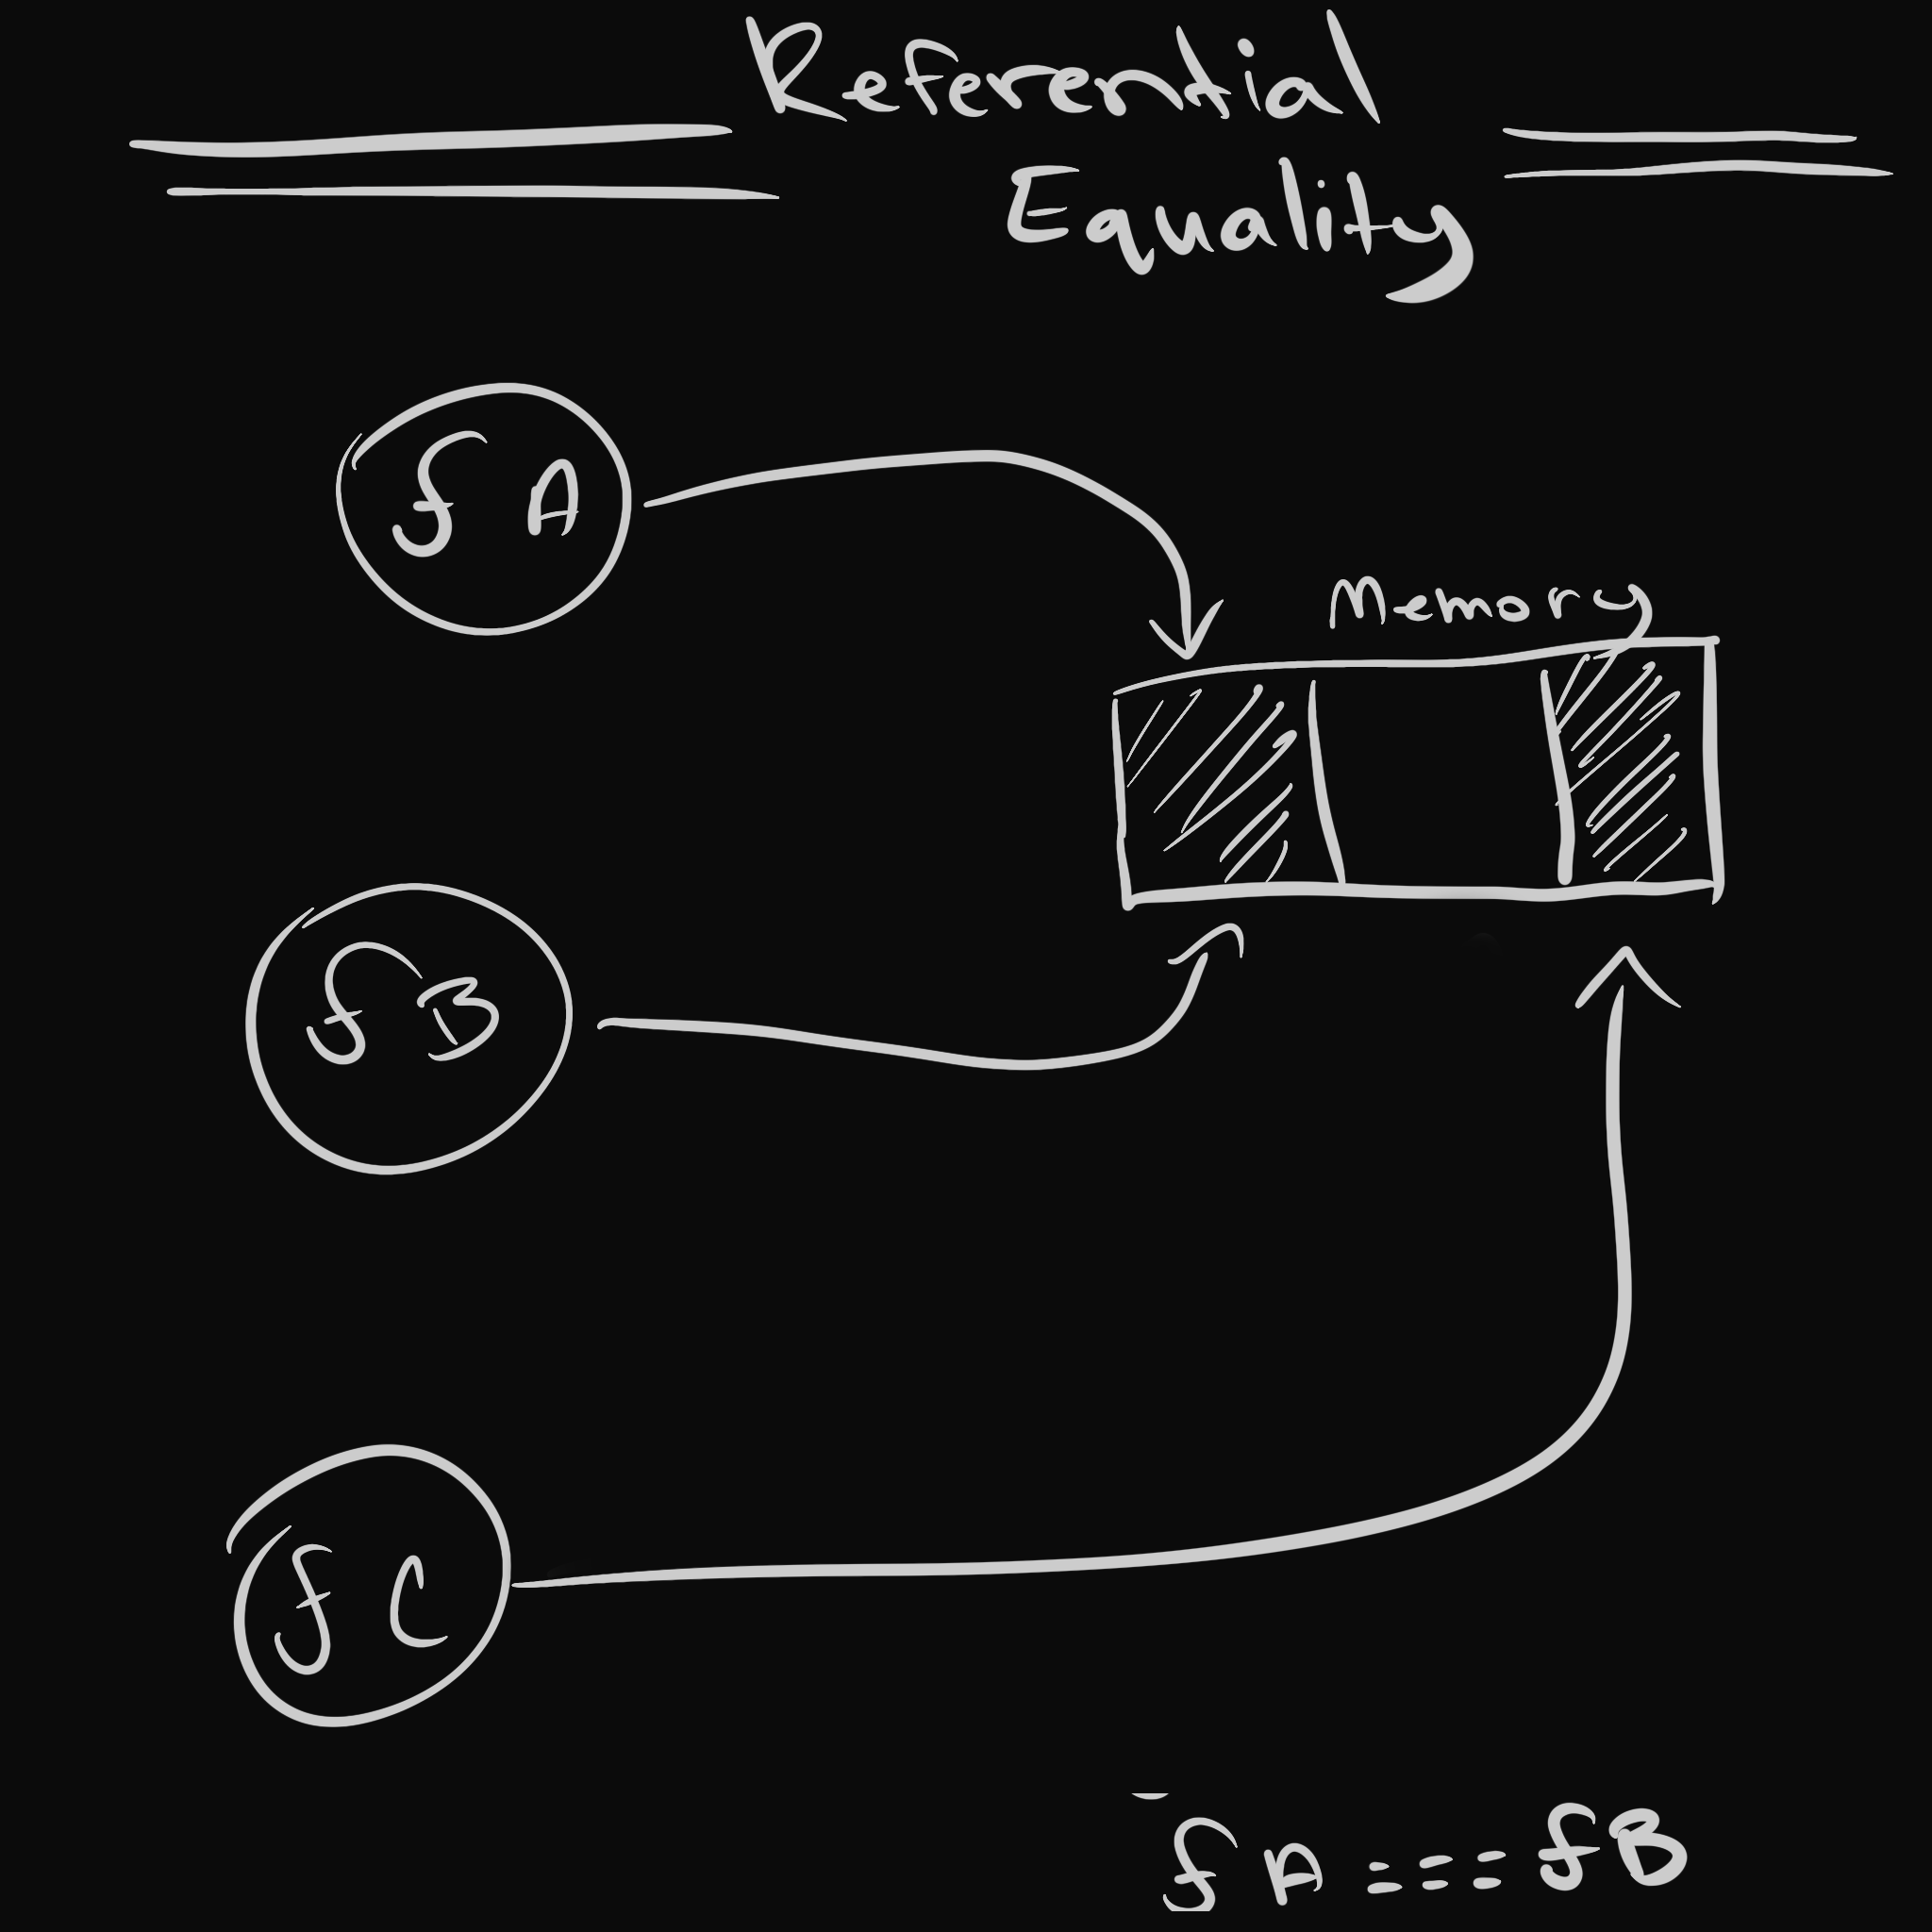 Referential
Equality
f A
Memory
f B
f C
f A === f B